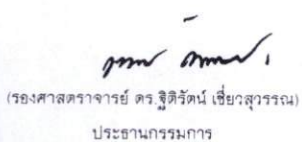 (รองศาสตราจารย์ ดร.ฐิติรัตน์ เชี่ยวสุวรรณ)
ประธานกรรมการ